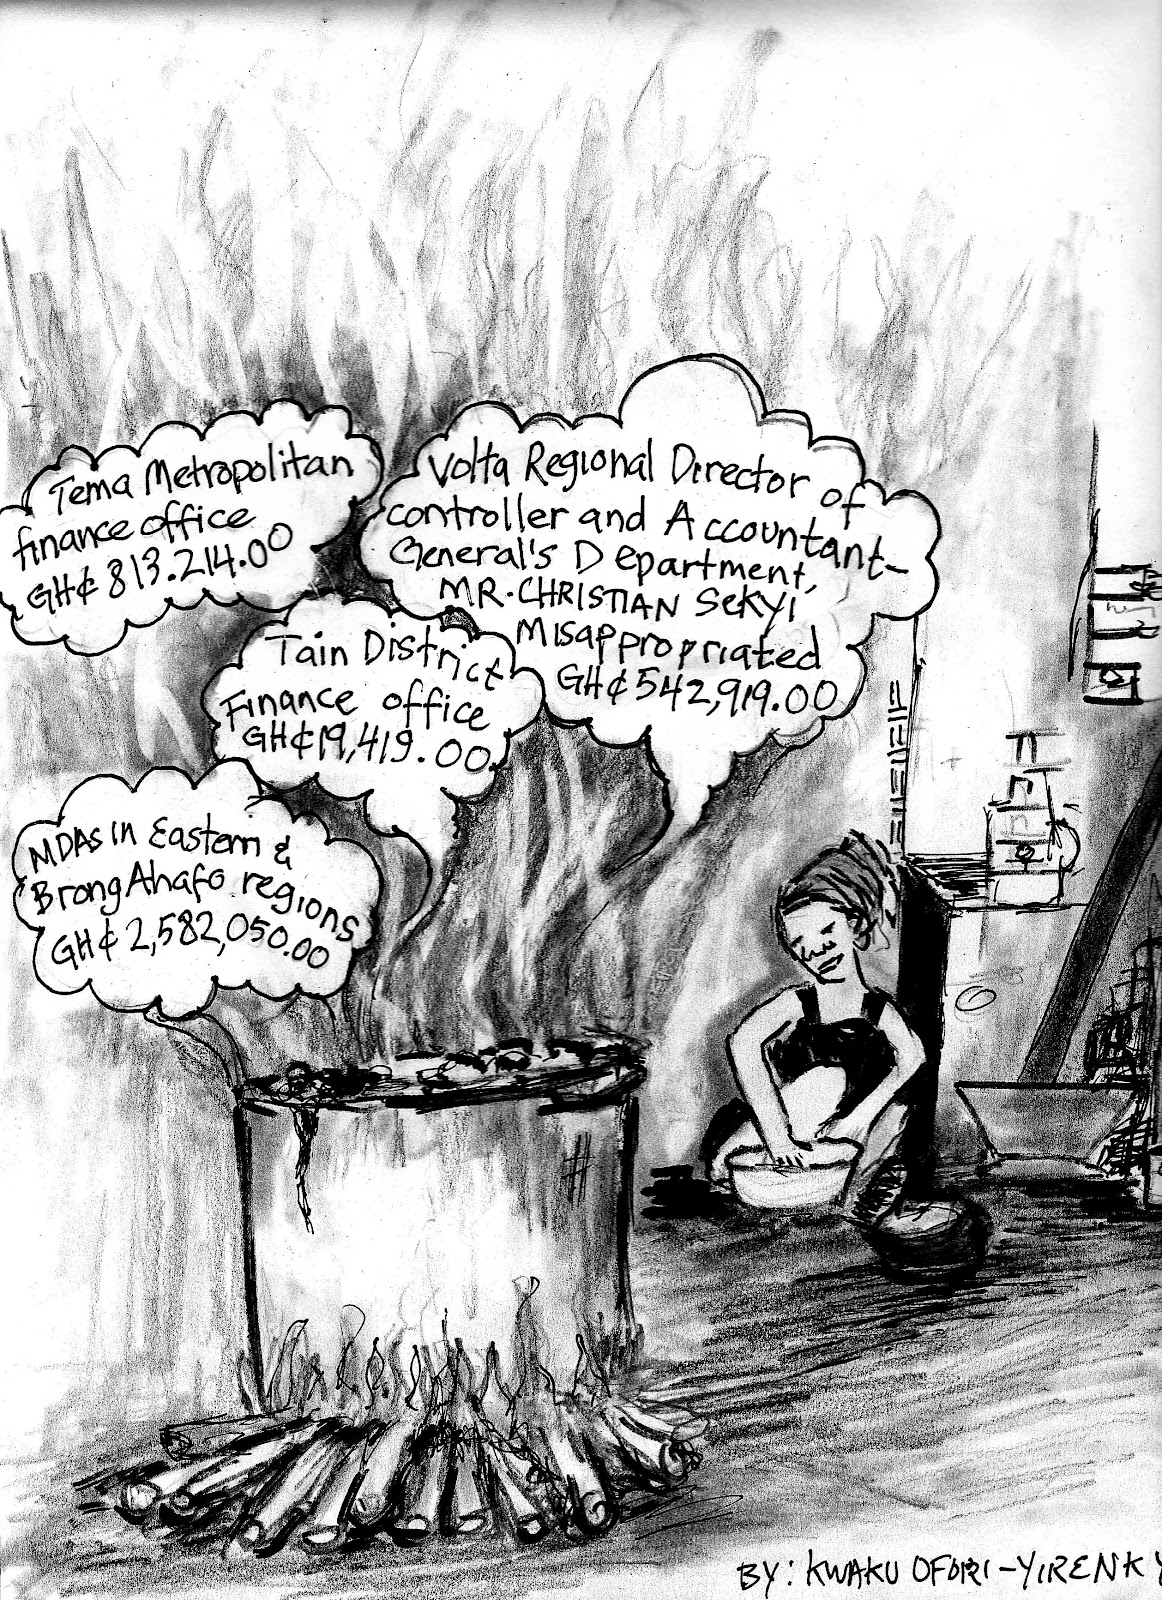 Tema Metropolitan
finance office
GH¢ 813.214.00
Volta Regional Director of
controller and Accountant-
General's Department,
MR. CHRISTIAN SEKYI
Misappropriated
GH¢ 542,919.00
Tain District
Finance office
GH¢19,419.00
MDAS in Eastern &
Brong Ahafo regions
GH¢ 2,582,050.00
BY: KWAKU OFORI-YIRENKY